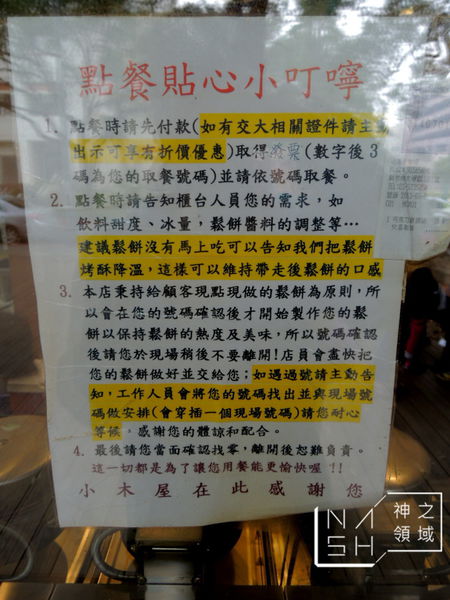 點餐貼心小叮嚀
1. 點餐時請先付款(如有交大相關證件請主動
出示可享有折價優惠)取得發票(數字後3
碼為您的取餐號碼)並請依號碼取餐。
2. 點餐時請告知櫃台人員您的需求，如
飲料甜度、冰量，鬆餅醬料的調整等…
建議鬆餅沒有馬上吃可以告知我們把鬆餅
烤酥降溫，這樣可以維持帶走後鬆餅的口感
3. 本店秉持給顧客現點現做的鬆餅為原則，所
以會在您的號碼確認後才開始製作您的鬆
餅以保持鬆餅的熱度及美味，所以號碼確認
後請您於現場稍後不要離開!店員會盡快把
您的鬆餅做好並交給您;如遇過號請主動告
知，工作人員會將您的號碼找出並與現場號
碼做安排(會穿插一個現場號碼)請您耐心
等候，感謝您的體諒和配合。
4. 最後請您當面確認找零，離開後恕難負責。
這一切都是為了讓您用餐能更愉快喔!!
小木屋在此感謝您
NASH 神之領域